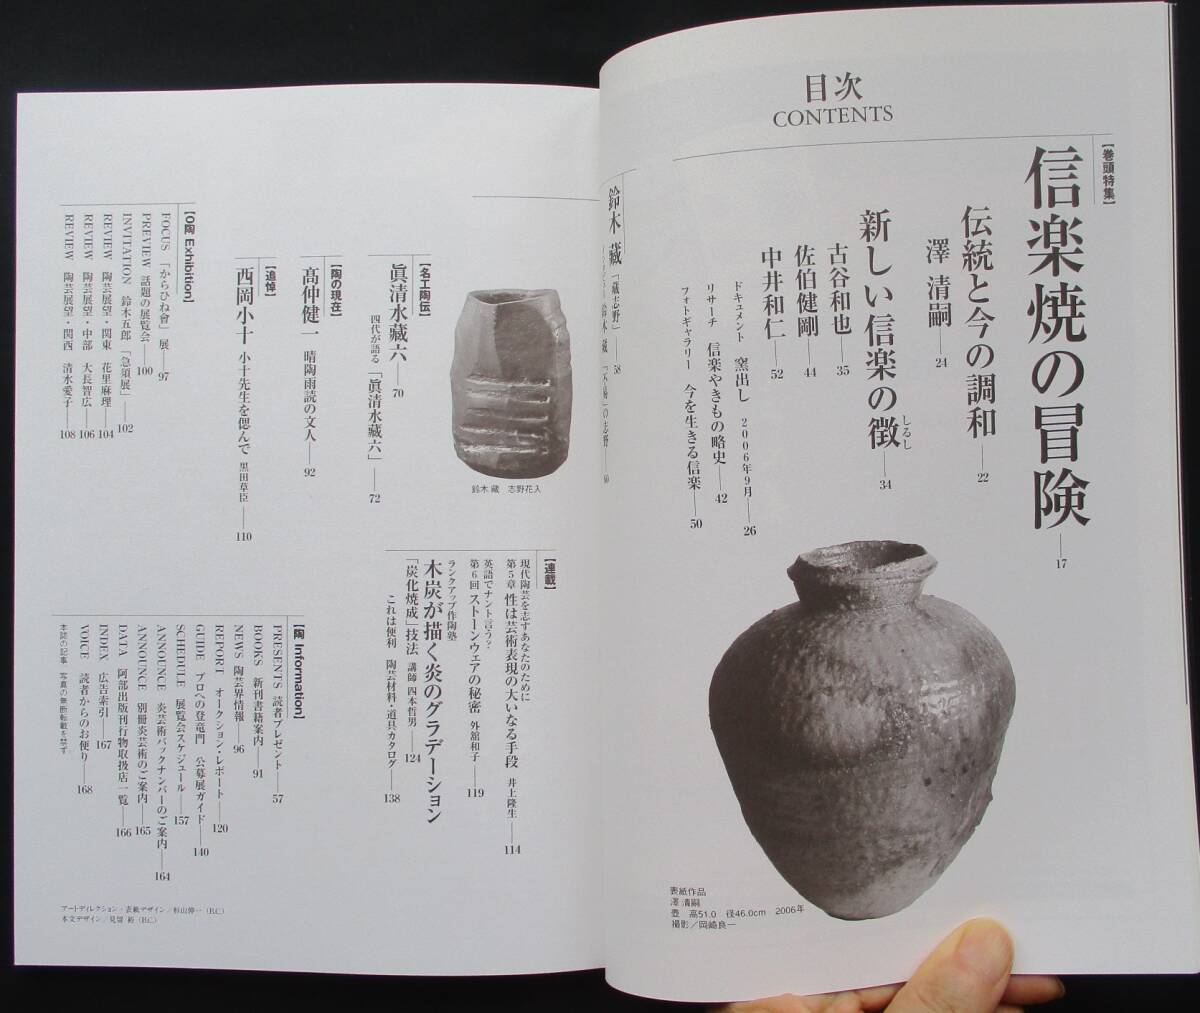 目次
CONTENTS
【巻頭特集】
信楽焼の冒険――17
伝統と今の調和――22
澤 清嗣――24
新しい信楽の徴――34
しるし
古谷和也――35
佐伯健剛――44
中井和仁――52
ドキュメント 窯出し 2006年9月――26
リサーチ 信楽やきもの略史――42
フォトギャラリー 今を生きる信楽――50
鈴木 藏「藏志野」――58
の志野――60
表紙作品
澤 清嗣
壺 高51.0 径46.0cm 2006年
撮影/岡崎良一
鈴木 藏 志野花入
【名工陶伝】
眞清水藏六――70
四代が語る「眞清水藏六」――72
【陶の現在】
髙仲健一 晴陶雨読の文人――92
【追悼】
西岡小十 小十先生を偲んで 黒田草臣――110
【O陶 Exhibition】
FOCUS 「からひね會」展――97
PREVIEW 話題の展覧会――100
INVITATION 鈴木五郎「急須展」――102
REVIEW 陶芸展望・関東 花里麻理――104
REVIEW 陶芸展望・中部 大長智広――106
REVIEW 陶芸展望・関西 清水愛子――108
【連載】
現代陶芸を志すあなたのために
第5章 性は芸術表現の大いなる手段 井上隆生――114
英語でナント言う?
第6回 ストーンウェアの秘密 外舘和子――119
ランクアップ作陶塾
木炭が描く炎のグラデーション
「炭化焼成」技法 講師 四本哲男――124
これは便利 陶芸材料・道具カタログ――138
【陶 Information】
PRESENTS 読者プレゼント――57
BOOKS 新刊書籍案内――91
NEWS 陶芸界情報――96
REPORT オークション・レポート――120
GUIDE プロへの登竜門 公募展ガイド――140
SCHEDULE 展覧会スケジュール――157
ANNOUNCE 炎芸術バックナンバーのご案内――164
ANNOUNCE 別冊炎芸術のご案内――165
DATA 阿部出版刊行物取扱店一覧――166
INDEX 広告索引――167
VOICE 読者からのお便り――168
本誌の記事、写真の無断転載を禁ず
アートディレクション・表紙デザイン/杉山伸一(B.C.)
本文デザイン/見留 裕(B.C.)